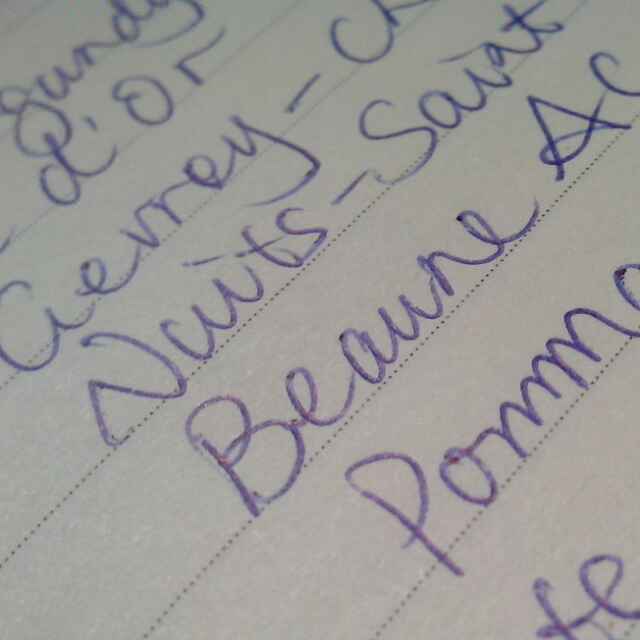 d'Or
Gevrey-Ch
Nuits-Saint
Beaune AC
Pomma